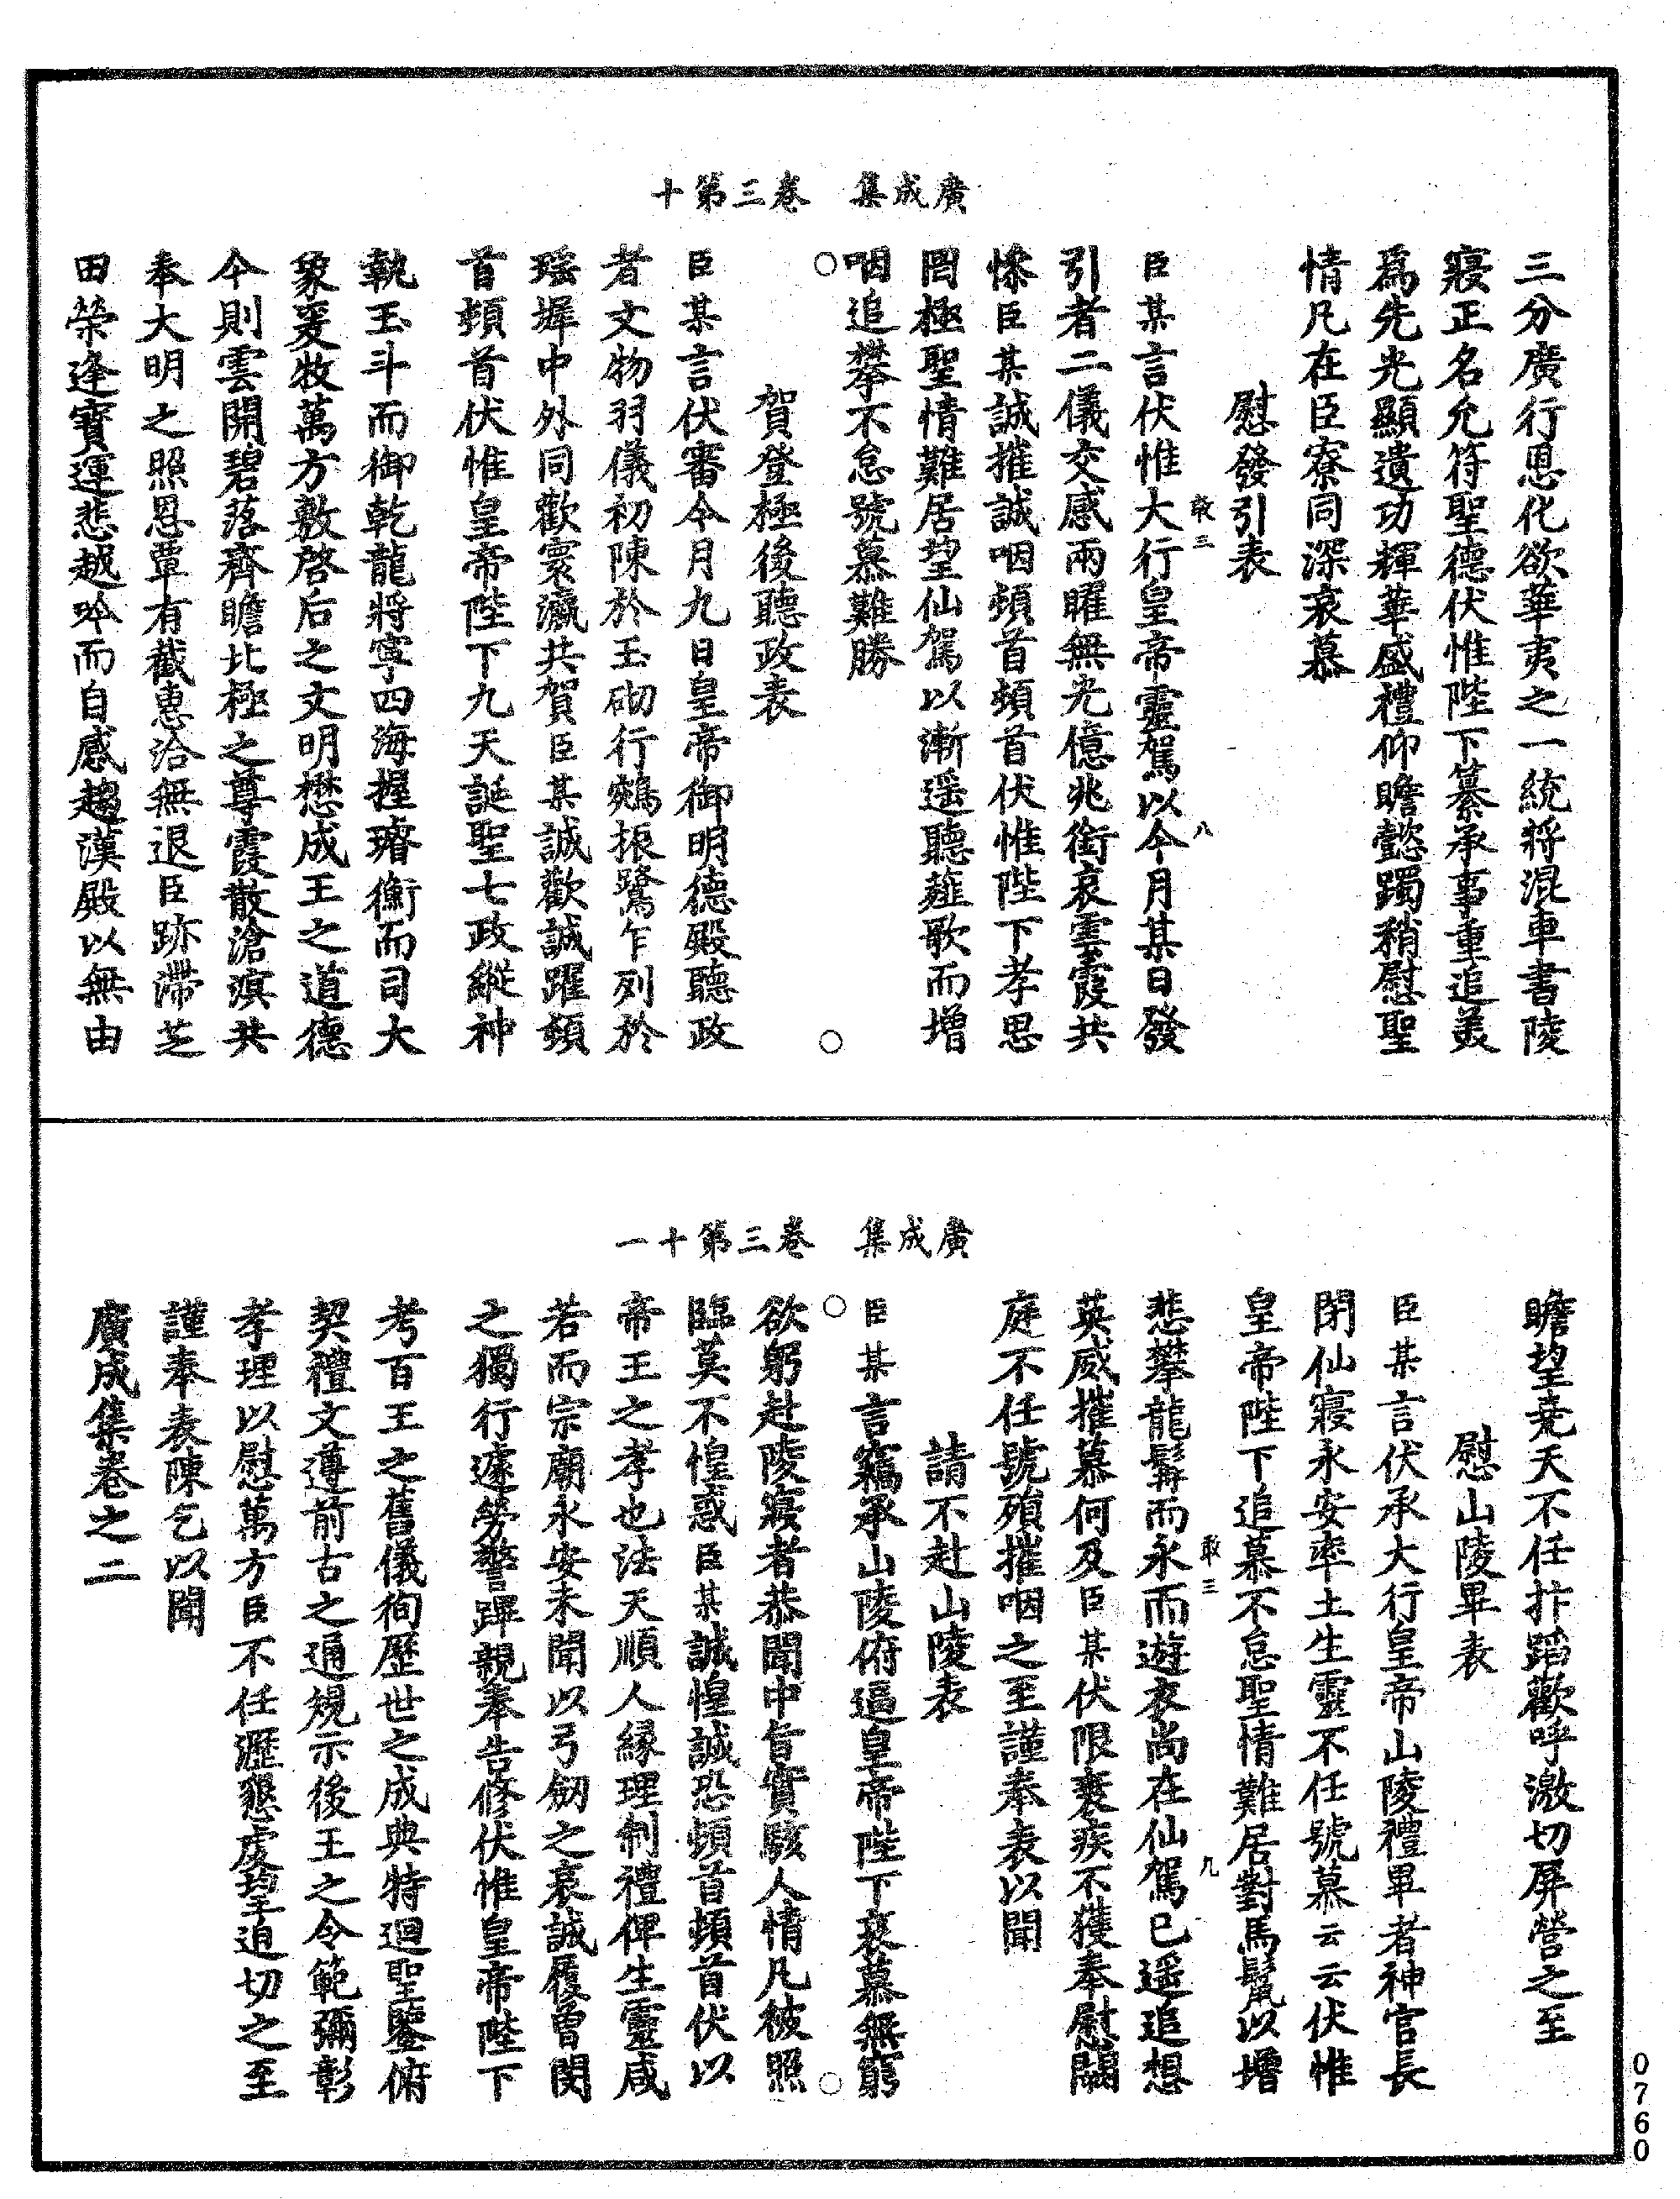 廣成集　卷三第十
三分廣行恩化欲華夷之一統將混車書陵
寢正名允符聖德伏惟陛下纂承事重追美
爲先光顯遺功輝華盛禮仰瞻懿躅稍慰聖
情凡在臣寮同深哀慕
慰發引表
臣某言伏惟大行皇帝靈駕以今月某日發
敢三　八
引者二儀交感兩曜無光億兆銜哀雲霞共
慘臣某誠摧誠咽頓首頓首伏惟陛下孝思
罔極聖情難居望仙駕以漸遥聽薤歌而增
咽追攀不怠號慕難勝
賀登極後聽政表
臣某言伏審今月九日皇帝御明德殿聽政
者文物羽儀初陳於玉砌行鵷振鷺乍列於
瑶墀中外同歡寰瀛共賀臣某誠歡誠躍頓
首頓首伏惟皇帝陛下九天誕聖七政縱神
執玉斗而御乾龍將寧四海握璿衡而司大
象爰牧萬方敷啓后之文明懋成王之道德
今則雲開碧落齊瞻北極之尊霞散滄溟共
奉大明之照恩覃有截惠洽無退臣跡滯芝
田榮逢寶運悲越吟而自感趨漢殿以無由
廣成集　卷三第十一
瞻望堯天不任抃蹈歡呼激切屏營之至
慰山陵畢表
臣某言伏承大行皇帝山陵禮畢者神官長
閉仙寢永安率土生靈不任號慕云云伏惟
皇帝陛下追慕不怠聖情難居對馬鬣以增
敢三　九
悲攀龍髯而永而遊衣尚在仙駕已遥追想
英威摧慕何及臣某伏限衰疾不獲奉慰闕
庭不任號殞摧咽之至謹奉表以聞
請不赴山陵表
臣某言竊承山陵俯逼皇帝陛下哀慕無窮
欲躬赴陵寢者恭聞中旨實駭人情凡彼照
臨莫不惶惑臣某誠惶誠恐頓首頓首伏以
帝王之孝也法天順人緣理制禮俾生靈咸
若而宗廟永安未聞以弓劒之哀誠履曾閔
之獨行遽勞警蹕親奉告修伏惟皇帝陛下
考百王之舊儀徇歷世之成典特迴聖鑒俯
契禮文遵前古之通規示後王之令範彌彰
孝理以慰萬方臣不任瀝懇虔望迫切之至
謹奉表陳乞以聞
廣成集卷之二
0760